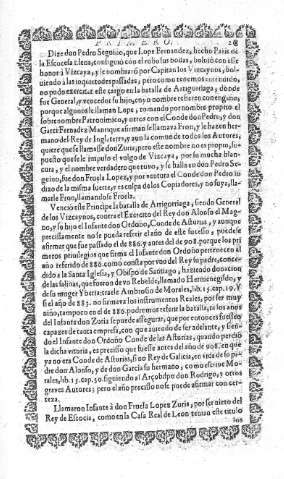 PRIMERO. 26
Dize don Pedro Seguino, que Lope Fernandez, hecho Paris de
la Escocesa Elena, consiguiò con el robo las bodas, bolviò con este
honor à Vizcaya, y le nombraró por Capitan los Vizcaynos, bol-
viendo à las inquietudes passadas, pero como tenemos
no pudo exercitar este cargo en la batalla de Arrigorriaga, donde
fue General, y vencedor su hijo, cuyo nombre refieren con engaño,
porque algunos le llaman Lope, tomando por nombre proprio el
sobrenombre Patronimico, y otros con el Conde don Pedro, y don
Garci Fernãdez Manrique afirman se llamava Fron, y le hazen her-
mano del Rey de Inglaterra, y aun la comun de todos los Autores,
quiere que se llamasse don Zuria, pero este nombre no es proprio, su-
puesto que se le impuso el vulgo de Vizcaya, por su mucha blan-
cura, y el nombre verdadero que tuvo, y se halla en don Pedro Se-
guino, fue don Froela Lopez, y por ventura el Conde don Pedro lo
dixo de la misma suerte, y es culpa de los Copiadores, y no suya, lla-
marle Fron, llamandose Froela.
Venciò este Principe la batalla de Arrigorriaga, siendo General
de los Vizcaynos, contra el Exercito del Rey don Alonso el Mag-
no, y su hijo el Infante don Ordoño, Conde de Asturias, y aunque
precisamente no se puede referir el año de este sucesso, puedese
afirmar que fue passado el de 886. y antes del de 908. porque los pri-
meros privilegios que firma el Infante don Ordoño pertenecen al
año referido de 886. como consta por vno del Rey su padre, conce-
dido à la Santa Iglesia, y Obispo de Santiago, haziendo donacion
de las salinas, que fueron de vn Rebelde, llamado Hermenegildo, y
de su muger Yberia: trae Ambrosio de Morales, lib. 15. cap. 19. y
si el año de 885. no firmava los instrumentos Reales, por ser muy
niño, tampoco en el de 886. podremos referir la batalla, si los años
del Infante don Zuria se puede assegurar, que por entonces fuessen
capaces de tanta empresa, con que aviendo de ser adelante, y sien-
do el Infante don Ordoño Conde de las Asturias, quando perdiò
la dicha vitoria, es preciso que fuesse antes del año de 908. en que
ya no era Conde de Asturias, si no Rey de Galicia, en vida de su pa-
dre don Alonso, y de don Garcia su hermano, como escrive Mo-
rales, lib. 15. cap. 30. siguiendo al Arçobispo don Rodrigo, y otros
graves Autores; pero el año preciso no se puede afirmar con cer-
teza.
Llamaron Infante à don Froela Lopez Zuria, por ser nieto del
Rey de Escocia, como en la Casa Real de Leon tenian este titulo